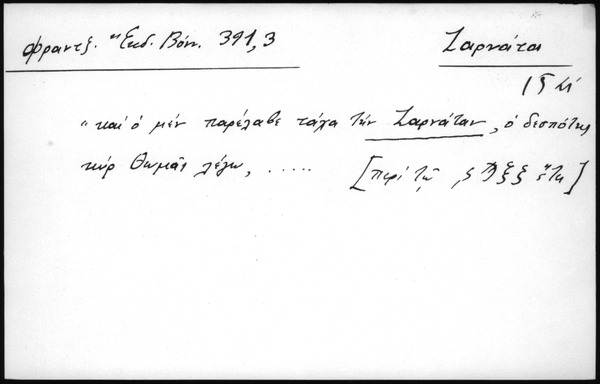 Φραντζ. "Εκδ. Βόν. 391,3
Ζαρνάτα
15
"καί ὁ μέν παρέλαβε τάχα τήν Ζαρνάταν, ὁ δεσπότης
κύρ Θωμᾶς λέγω, .....
[περί τῷ ϛϠξξ ἔτει]